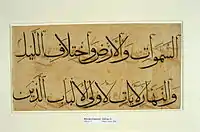 السموات والارض واختلاف الليل
والنهار لايات لاولى الالباب الذين